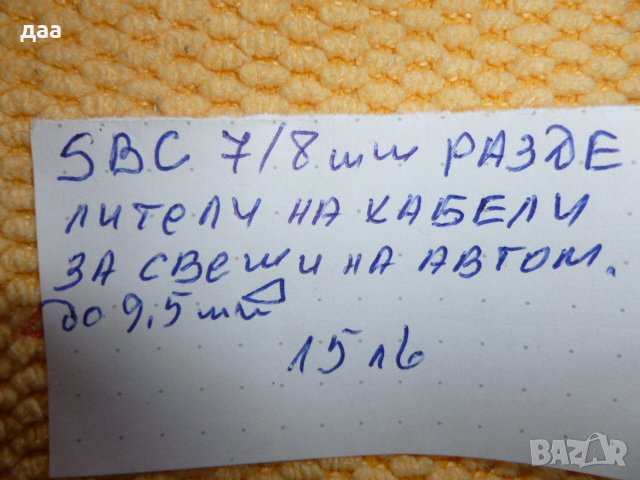 даа
SBC 7/8 мм РАЗДЕ
ЛИТЕЛИ НА КАБЕЛИ
ЗА СВЕЩИ НА АВТОМ.
до 9,5 мм
15 лв
BAZAR